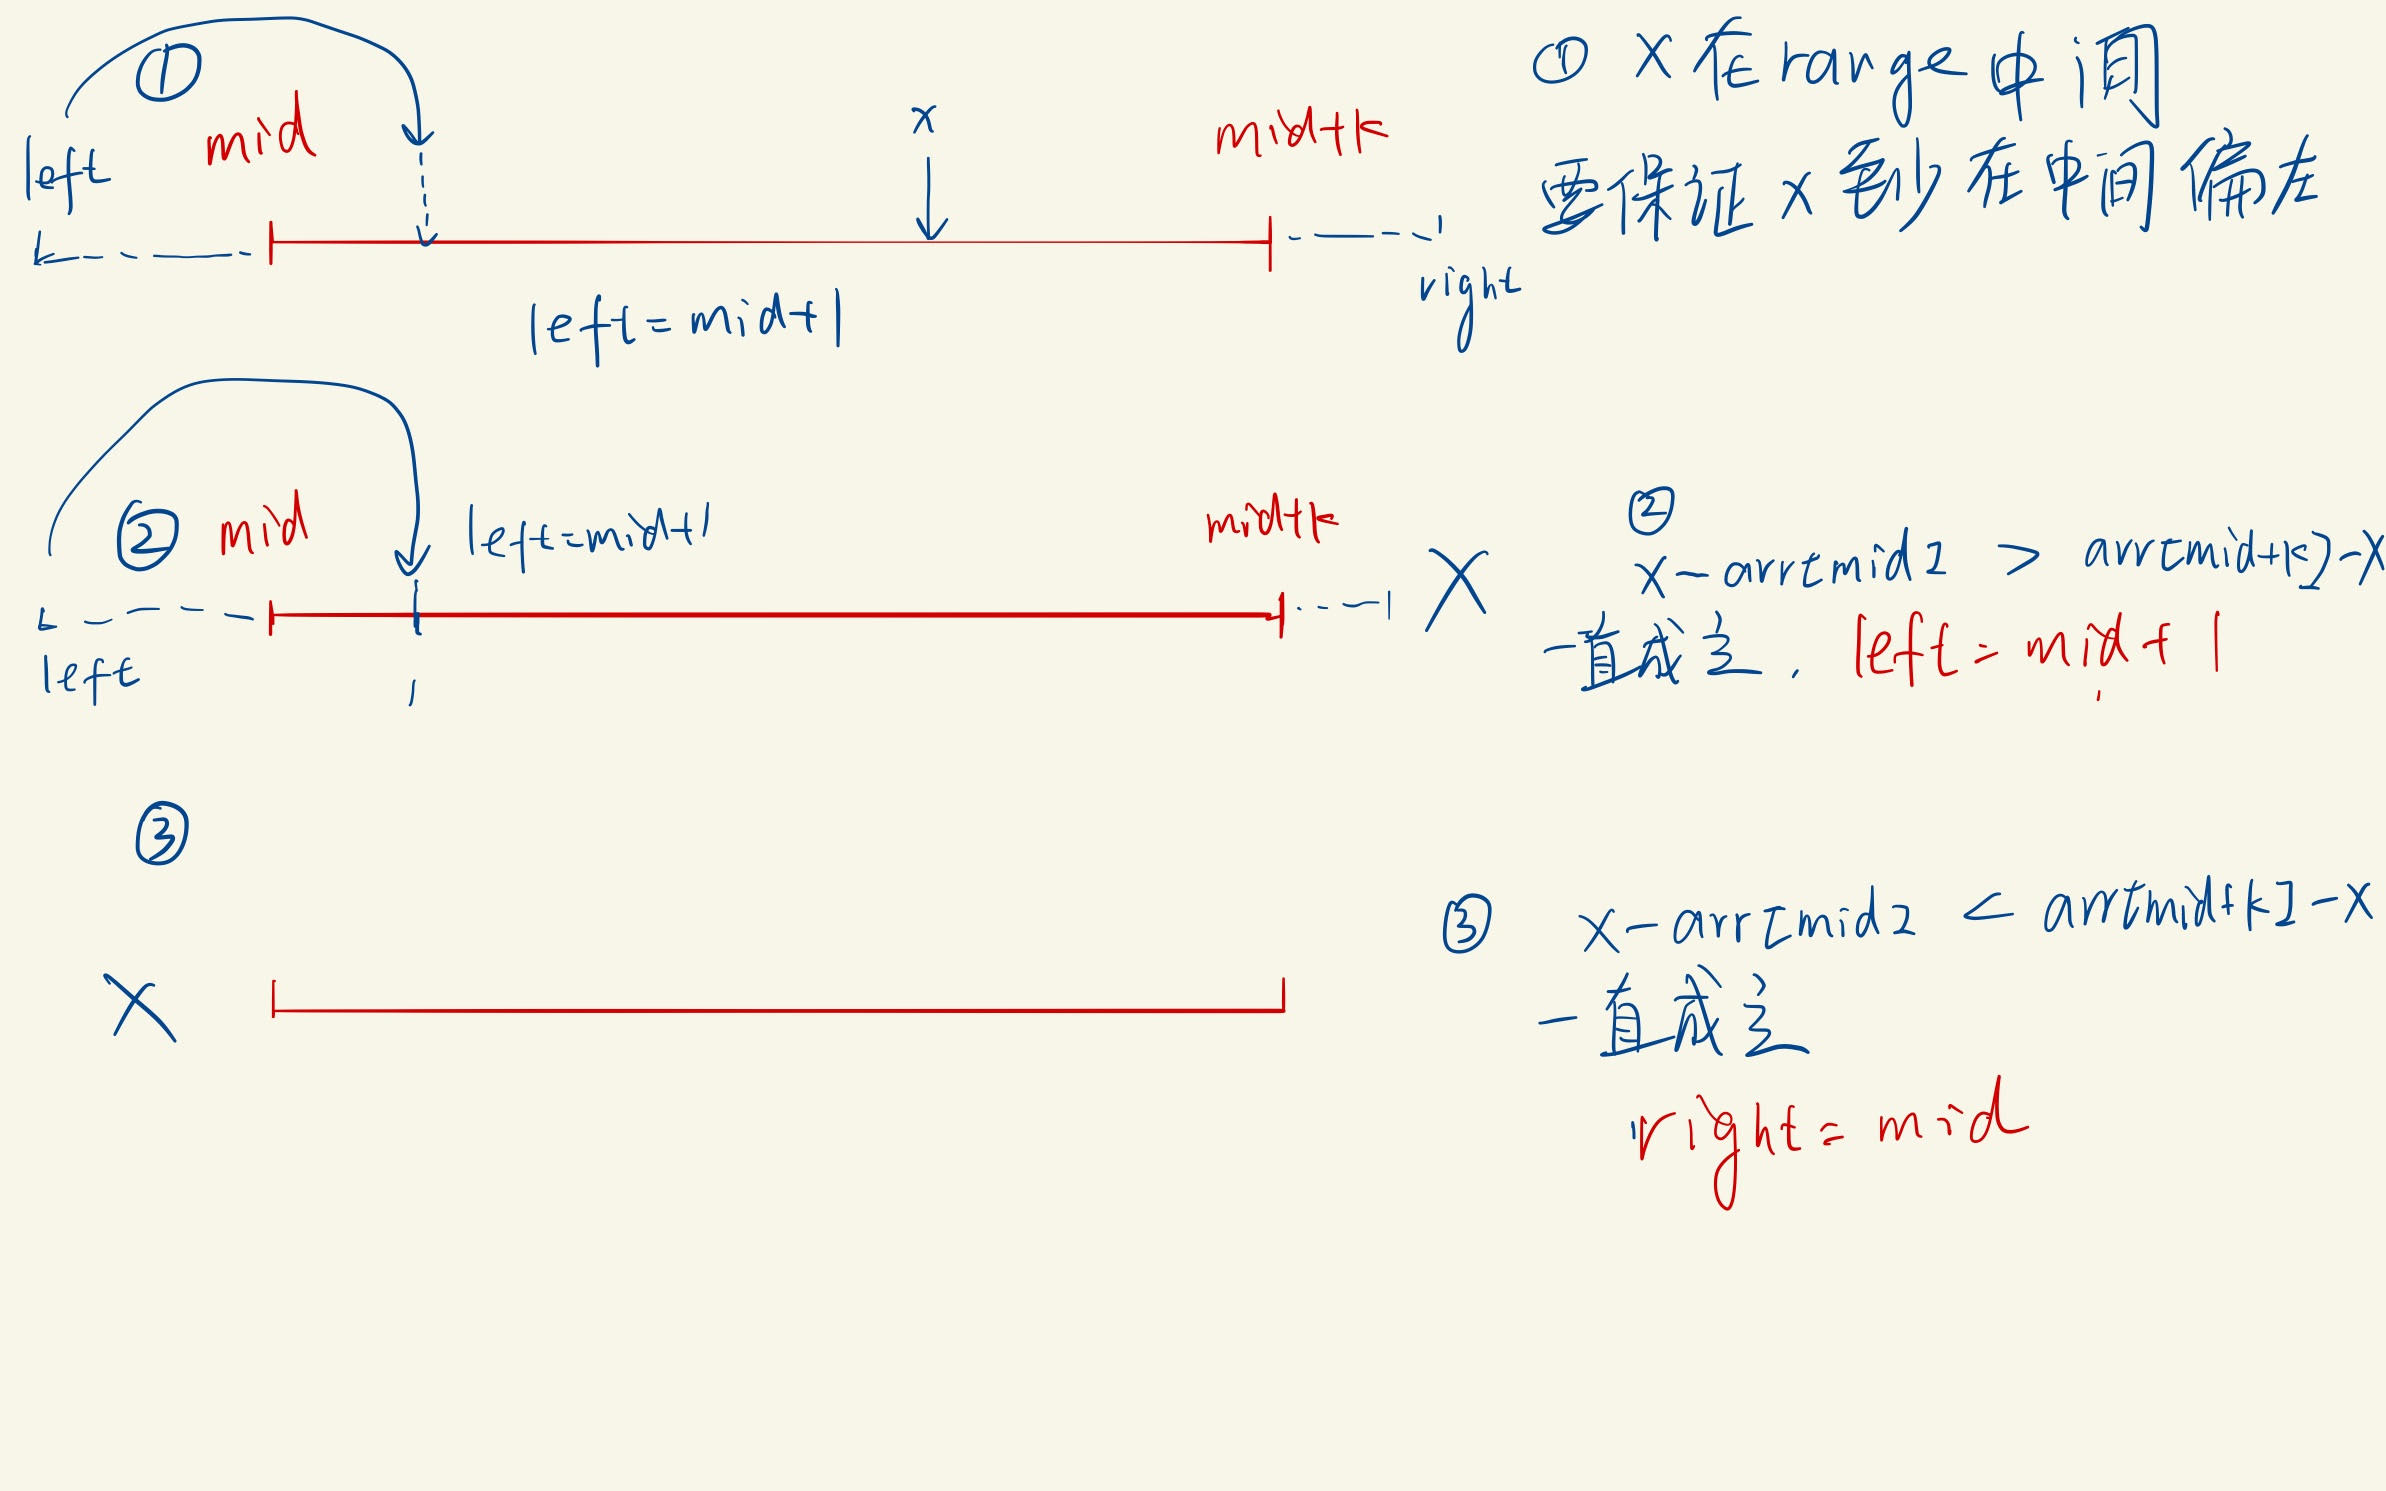 ①
left
mid
x
mid+k
right
left=mid+1
① x 在range中间
要保证 x 至少在中间偏左
② mid
left=mid+1
mid+k
X
left
②
x-arr[mid] > arr[mid+k]-x
一直成立, left=mid+1
③
X
③ x-arr[mid] < arr[mid+k]-x
一直成立
right=mid